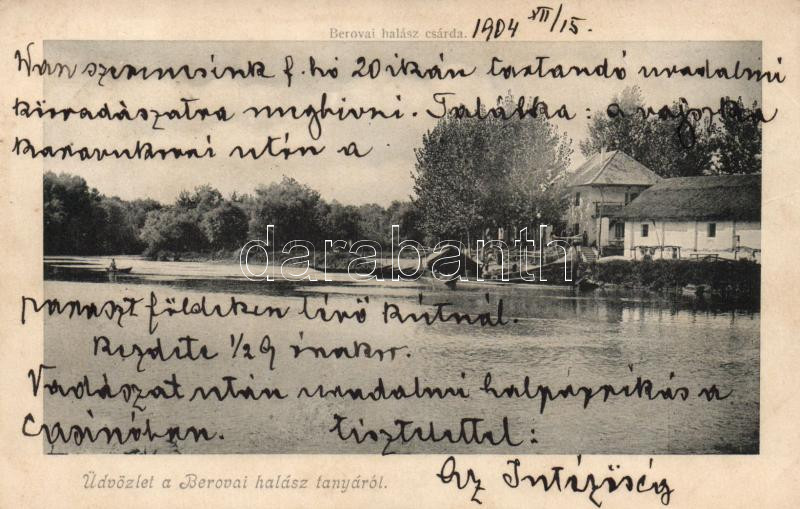 Berovai halász csárda. 1904 XII/15.
Van szerencsénk f. hó 20 ikán tartandó uradalmi
meghívni. Találka: a rajzka
karavukovai utón a
paraszt földeken lévő kútnál.
Kezdete ½ 9 órakor.
darabanth
Vadászat után uradalmi halpaprikás a
Csárdában. tisztelettel:
Üdvözlet a Berovai halász tanyáról.
Az Intézőség